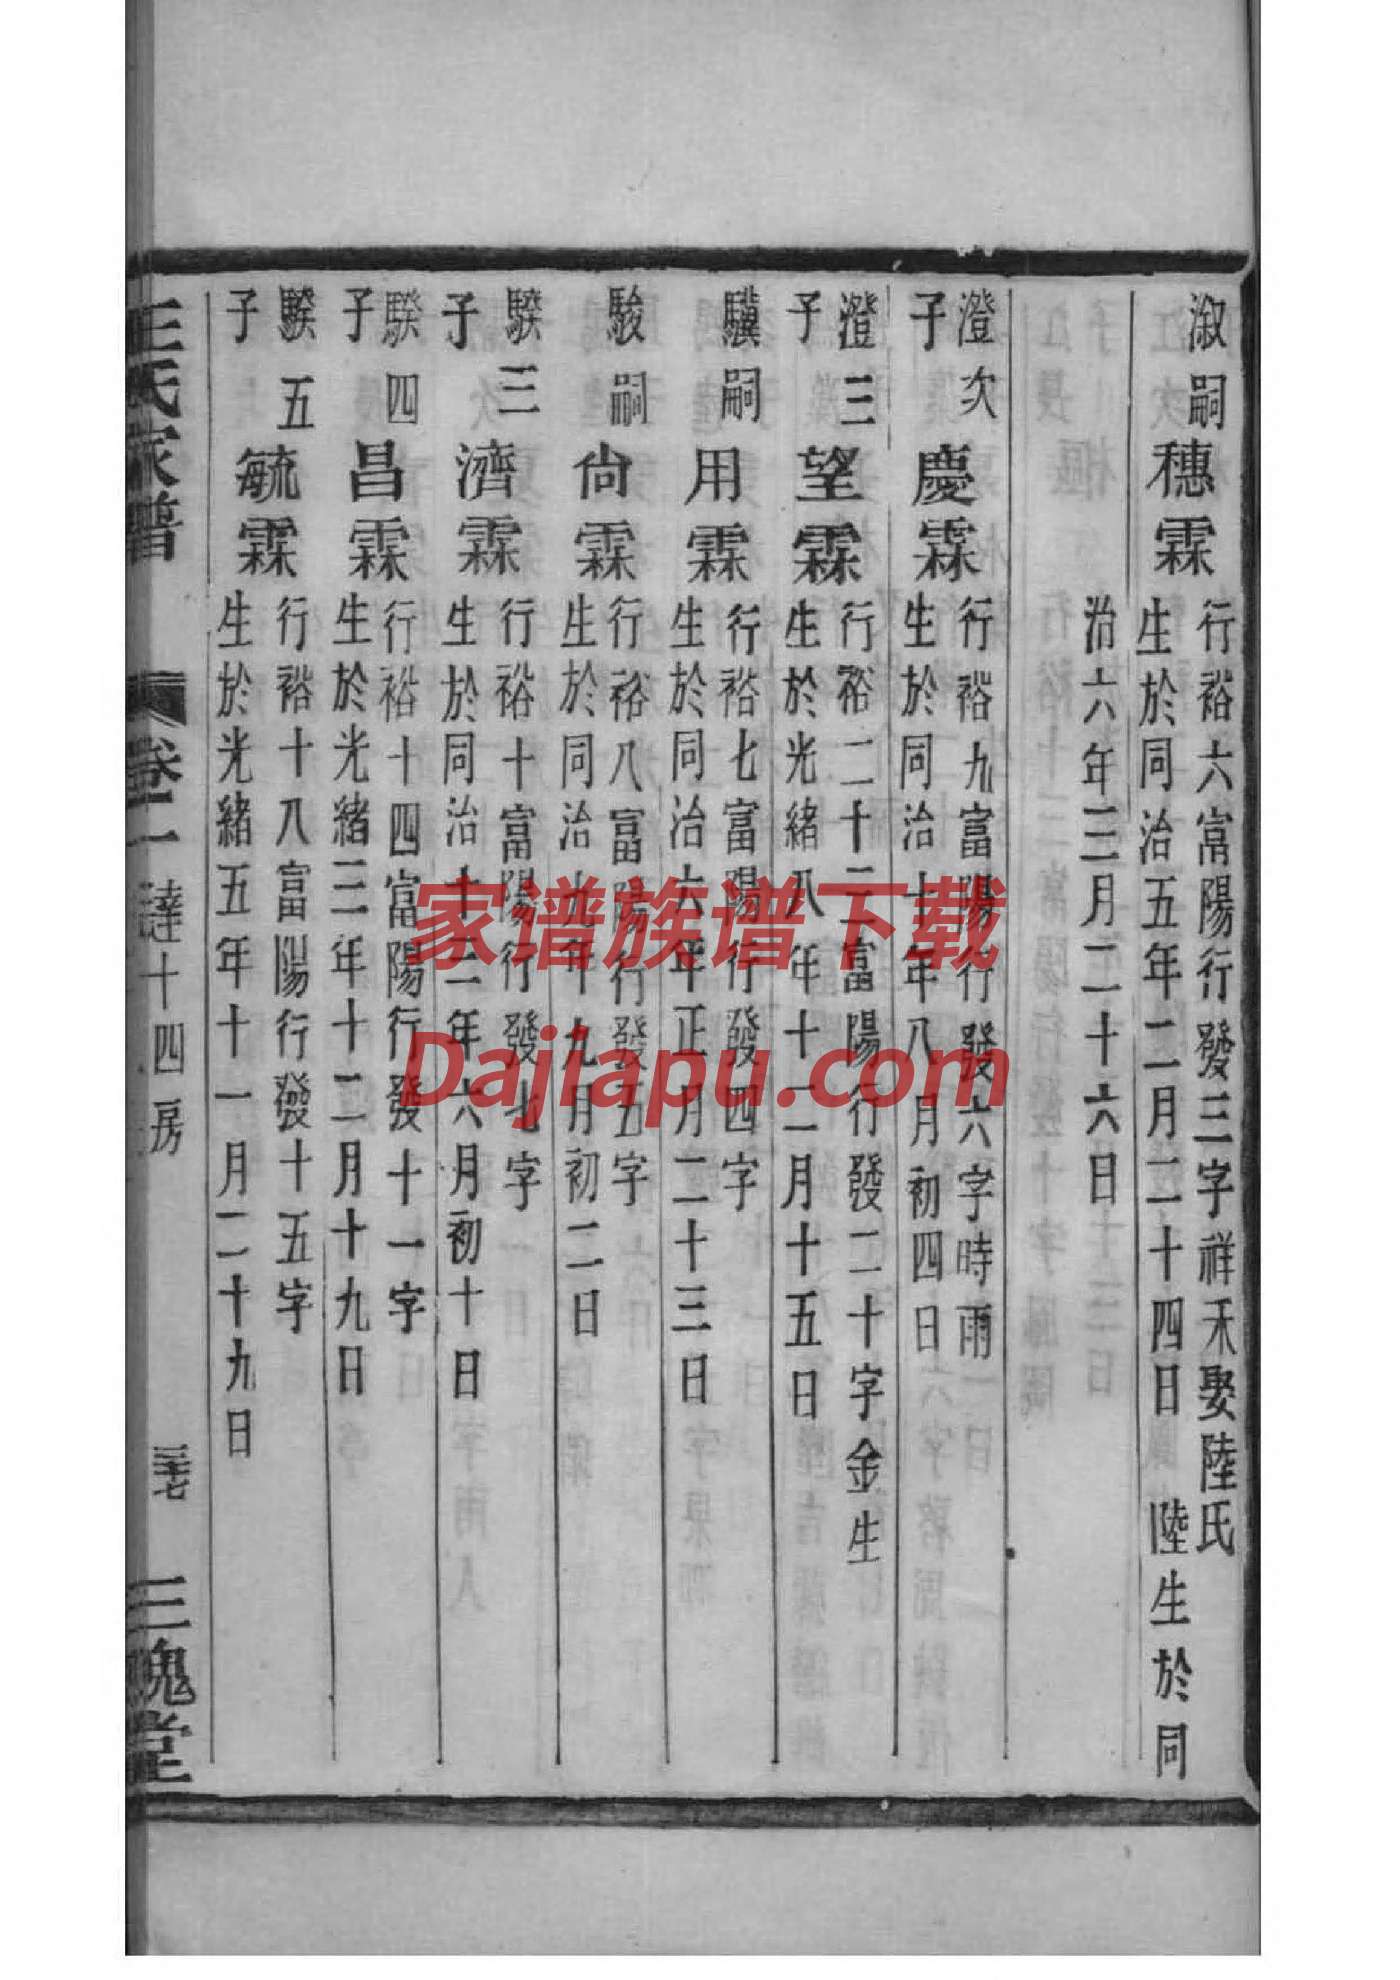 淑嗣
穗霖
行裕六富陽行發三字祥禾娶陸氏
生於同治五年二月二十四日 陸生於同
治六年三月二十六日
澄次
子
慶霖
行裕九富陽行發六字時雨
生於同治十年八月初四日
澄三
子
望霖
行裕二十二富陽行發二十字金生
生於光緒八年十二月十五日
驥嗣
用霖
行裕七富陽行發四字
生於同治六年正月二十三日
駿嗣
尙霖
行裕八富陽行發五字
生於同治九年九月初二日
騤三
子
濟霖
行裕十富陽行發七字
生於同治十二年六月初十日
騤四
子
昌霖
行裕十四富陽行發十一字
生於光緒三年十二月十九日
騤五
子
毓霖
行裕十八富陽行發十五字
生於光緒五年十一月二十九日
王氏家譜 卷二 達十四房 三十七 三槐堂
家谱族谱下载
Dajiapu.com